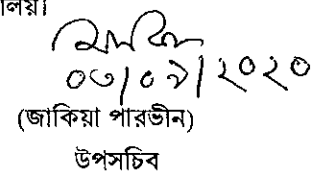 লিয়।
০৩/০৯/২০২০
(জাকিয়া পারভীন)
উপসচিব